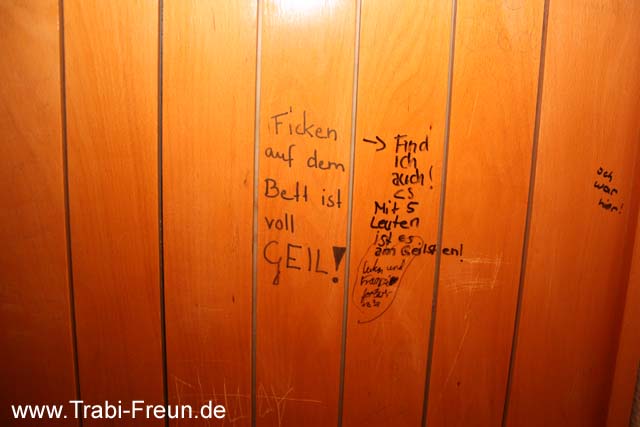 Ficken
auf dem
Bett ist
voll
GEIL!
→ Find
ich
auch!
Mit 5
Leuten
ist es
am Geilsten!
und
och
war
hier!
www.Trabi-Freun.de